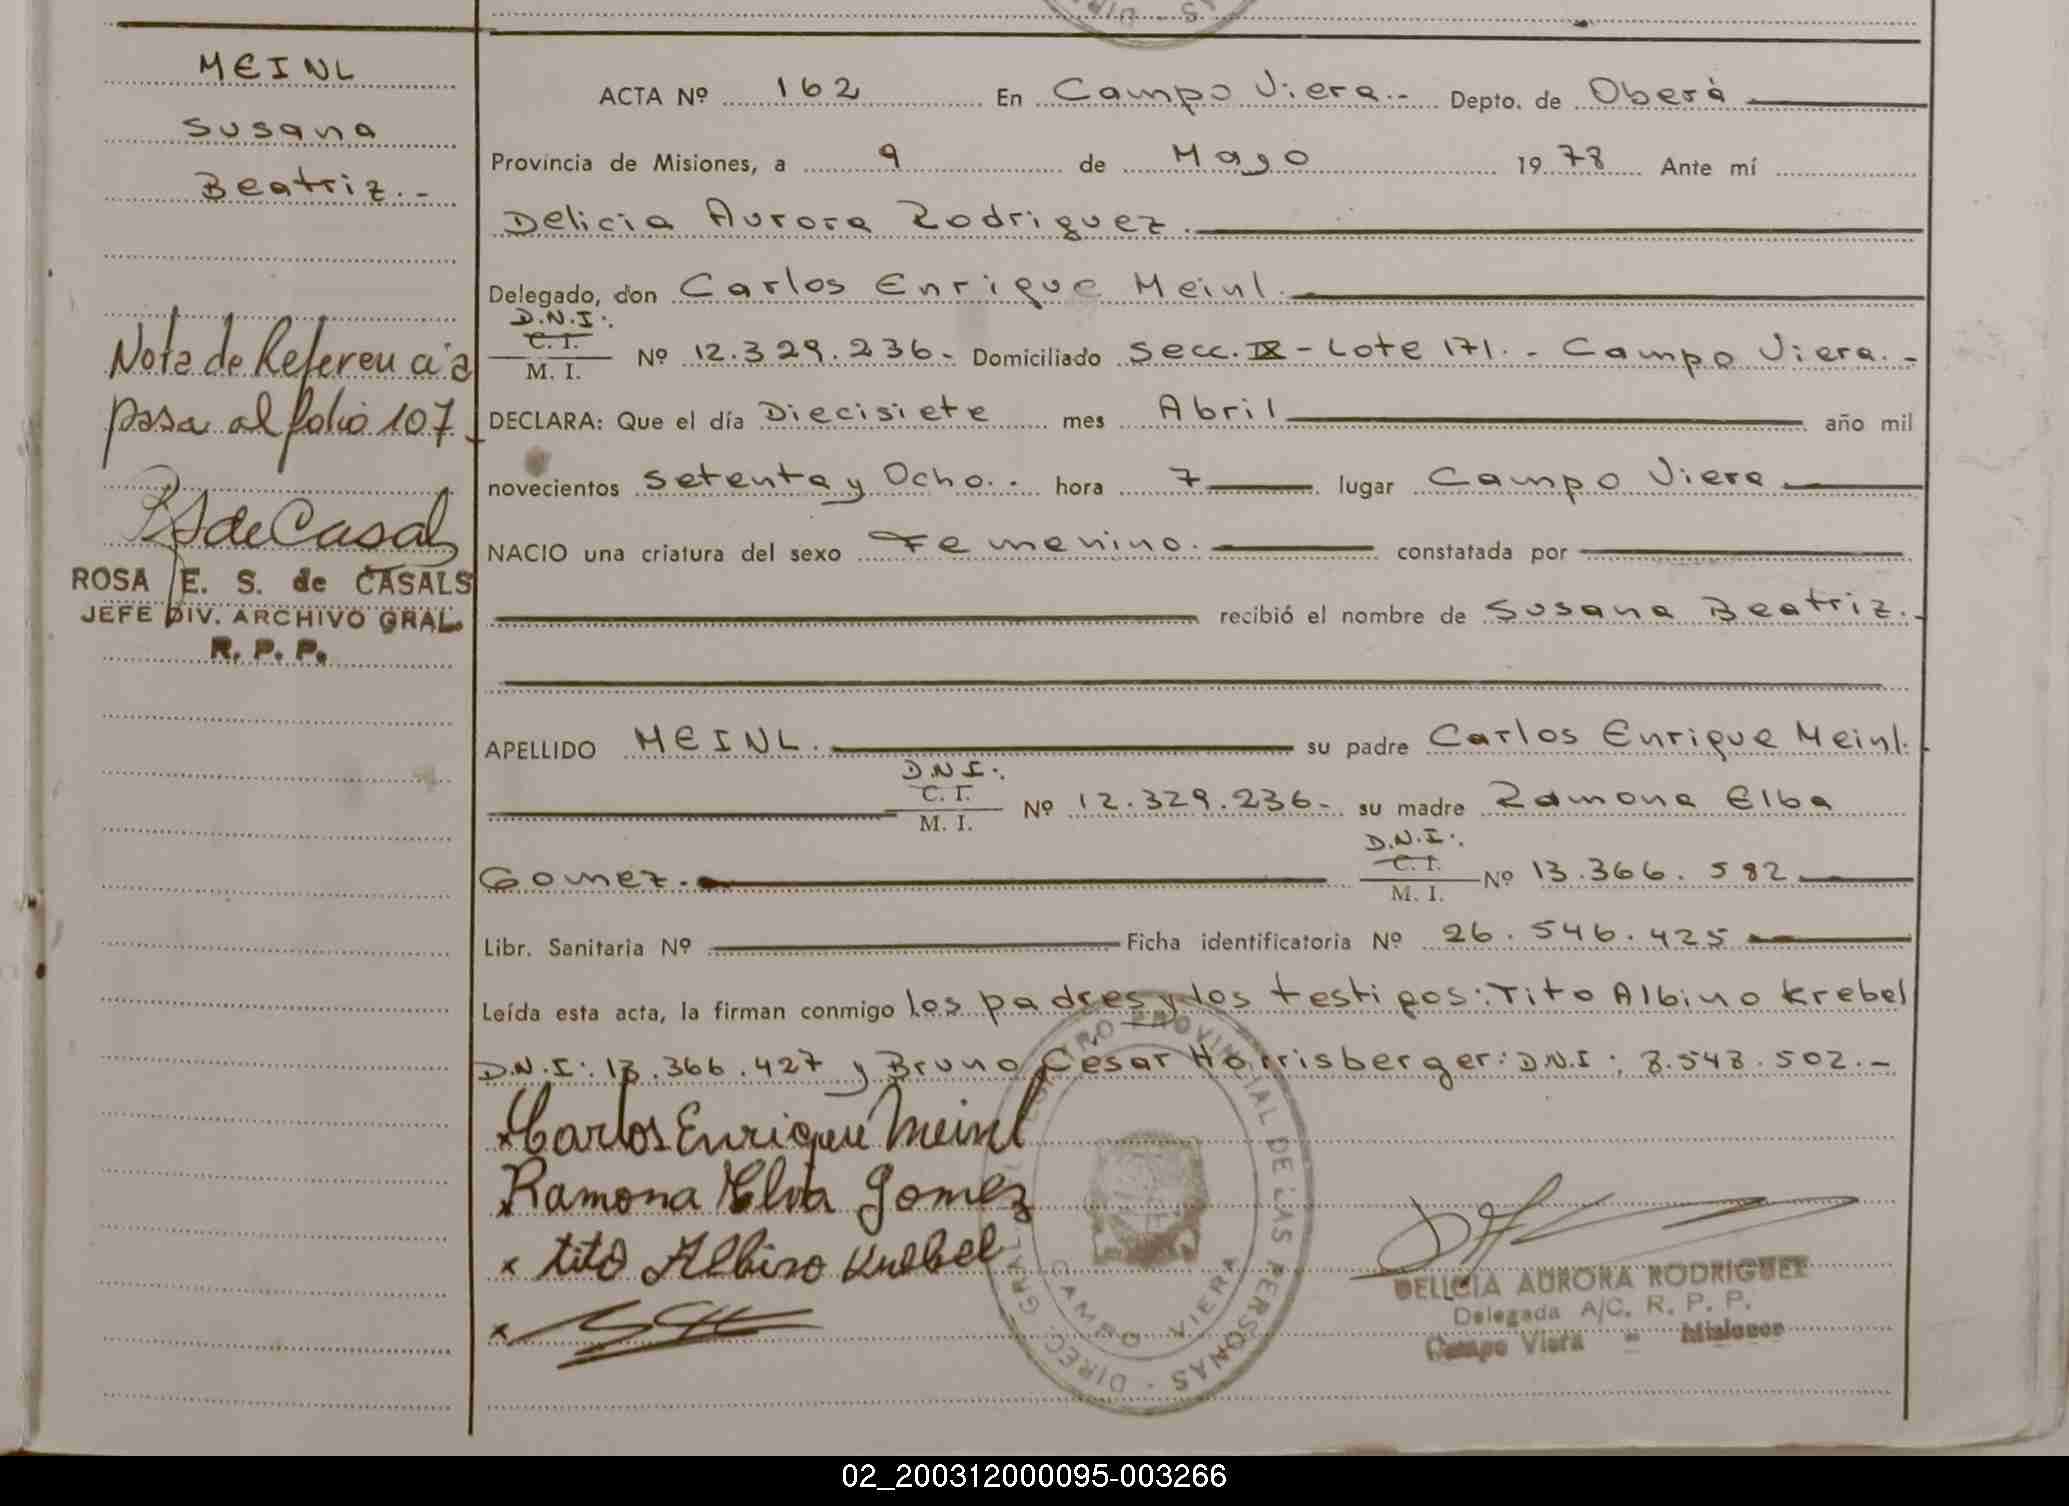 MEINL
Susana
Beatriz.-
Nota de Referencia
pasa al folio 107
RSdeCasals
ROSA E. S. de CASALS
JEFE DIV. ARCHIVO GRAL.
R. P. P.
ACTA Nº 162 En Campo Viera.- Depto. de Oberá
Provincia de Misiones, a 9 de Mayo 1978 Ante mí
Delicia Aurora Rodriguez.
Delegado, don Carlos Enrique Meinl.
D.N.I:.
C. I.
M. I. Nº 12.329.236.- Domiciliado Secc. IX - Lote 171.- Campo Viera.-
DECLARA: Que el día Diecisiete mes Abril año mil
novecientos setenta y Ocho.- hora 7 lugar Campo Viera
NACIO una criatura del sexo Femenino. constatada por
recibió el nombre de Susana Beatriz.-
APELLIDO MEINL. su padre Carlos Enrique Meinl.
D.N.I:.
C. I.
M. I. Nº 12.329.236.- su madre Ramona Elba
D.N.I:.
C. I.
Gomez. M. I. Nº 13.366.582
Libr. Sanitaria Nº Ficha identificatoria Nº 26.546.425
Leída esta acta, la firman conmigo los padres y los testigos: Tito Albino Krebel
D.N.I: 13.366.427 y Bruno Cesar Horrisberger: D.N.I: 8.548.502.-
x Carlos Enrique Meinl
Ramona Elva Gomez
x tito Albino Krebel
x
REGISTRO PROVINCIAL DE LAS PERSONAS - DIREC. GRAL.
CAMPO VIERA
DELICIA AURORA RODRIGUEZ
Delegada A/C. R. P. P.
Campo Viera - Misiones
02_200312000095-003266